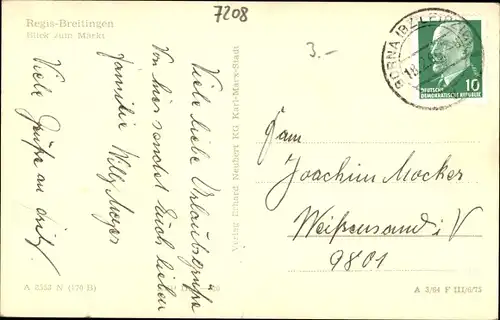 Regis-Breitingen
Blick zum Markt
7208
3.-
BORNA (BZ LEIPZIG)
10
DEUTSCHE
DEMOKRATISCHE REPUBLIK
Viele liebe Urlaubsgrüße
Von hier sendet Euch lieben
Familie Willy Meyer
Viele Grüße an
Verlag Erhard Neubert KG Karl-Marx-Stadt
Fam
Joachim Mocker
Weißensand i. V
9801
A 2553 N (170 B)
A 3/64 F III/6/75